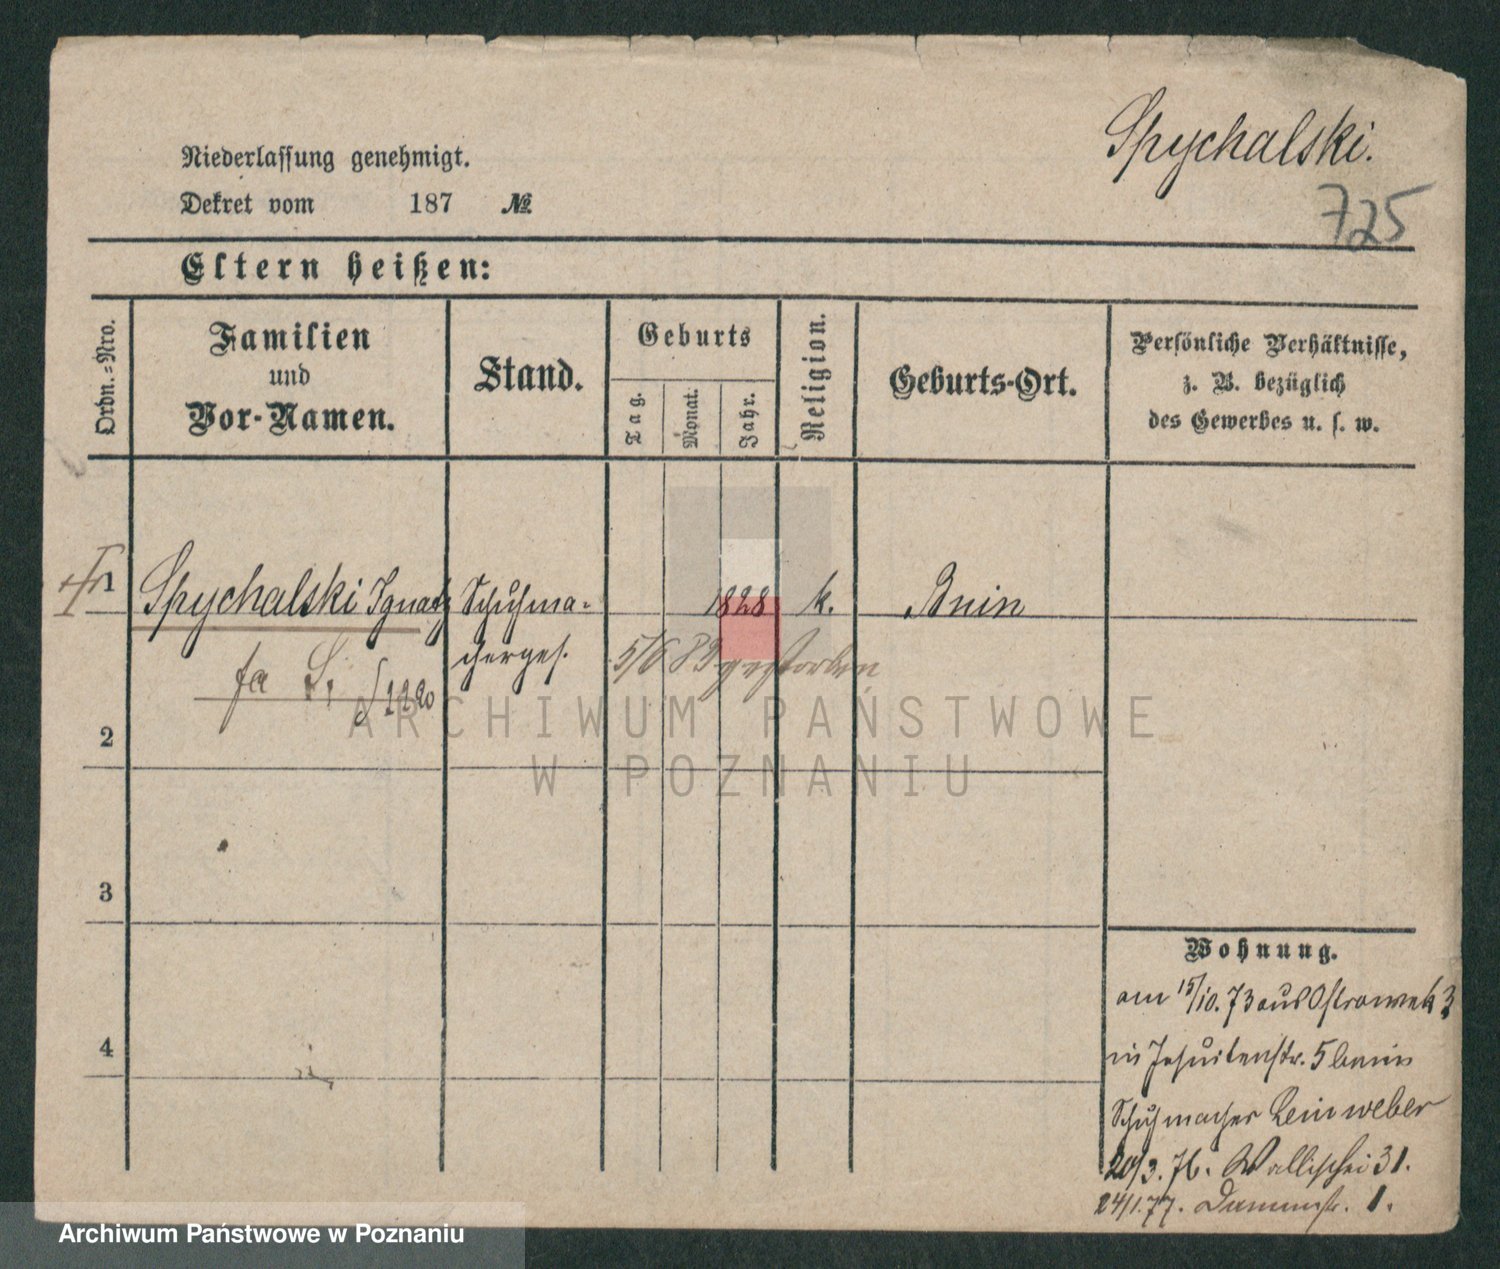 Spychalski.
725
Niederlassung genehmigt.
Dekret vom 187 №
Eltern heißen:
Ordn.=Nro.
Familien
und
Vor-Namen.
Stand.
Geburts
Tag.
Monat.
Jahr.
Religion.
Geburts-Ort.
Persönliche Verhältnisse,
z. B. bezüglich
des Gewerbes u. s. w.
1 Spychalski Ignatz Schuhma= 1828 k. Bnin
cherges. 5/6 83 gestorben
2
3
4
Wohnung.
am 15/10. 73 aus Ostrowek 3
in Jesuitenstr. 5 beim
Schuhmacher Leinweber
20/3. 76. Wallischei 31.
24/1.77. Dammstr. 1.
ARCHIWUM PAŃSTWOWE
W POZNANIU
Archiwum Państwowe w Poznaniu